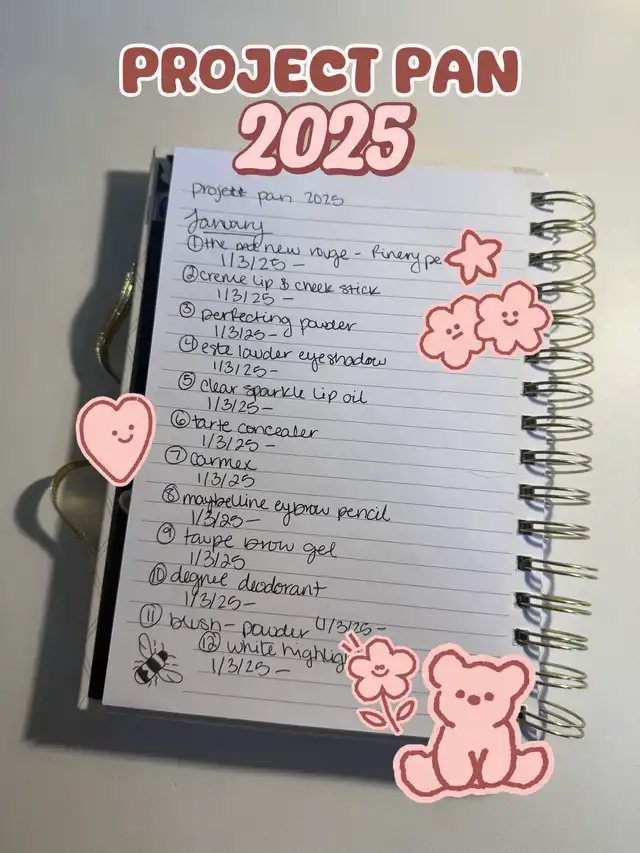 PROJECT PAN
2025
project pan 2025
January
① the new rouge - Rinery pe
1/3/25 -
② creme lip & cheek stick
1/3/25 -
③ perfecting powder
1/3/25 -
④ este lauder eyeshadow
1/3/25 -
⑤ clear sparkle lip oil
1/3/25 -
⑥ tarte concealer
1/3/25 -
⑦ carmex
1/3/25
⑧ maybelline eybrow pencil
1/3/25 -
⑨ taupe brow gel
1/3/25
⑩ degree deodorant
1/3/25 -
⑪ blush - powder 1/3/25 -
⑫ white highlig
1/3/25 -